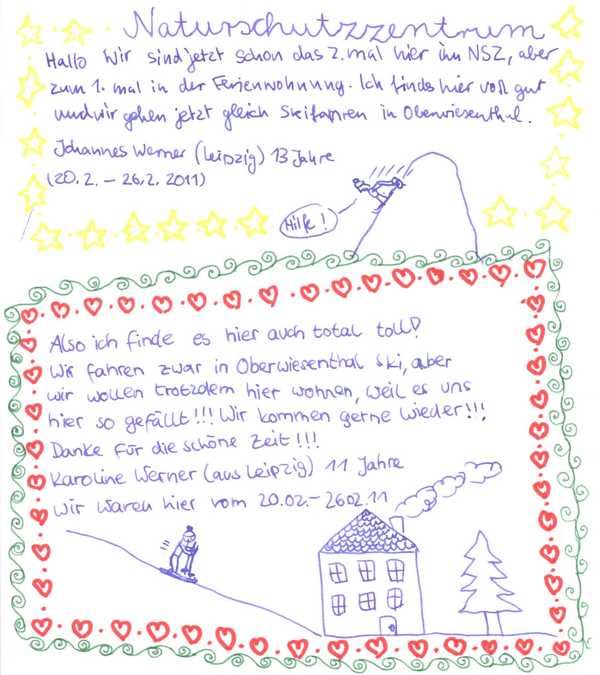 Naturschutzzentrum
Hallo Wir sind jetzt schon das 2. mal hier im NSZ, aber
zum 1. mal in der Ferienwohnung. Ich finds hier voll gut
und wir gehen jetzt gleich Skifahren in Oberwiesenthal.
Johannes Werner (Leipzig) 13 Jahre
(20.2. – 26.2. 2011)
Hilfe!
Also ich finde es hier auch total toll!
Wir fahren zwar in Oberwiesenthal Ski, aber
wir wollen trotzdem hier wohnen, weil es uns
hier so gefällt!!! Wir kommen gerne wieder!!!
Danke für die schöne Zeit!!!
Karoline Werner (aus Leipzig) 11 Jahre
Wir waren hier vom 20.02.– 26.02.11